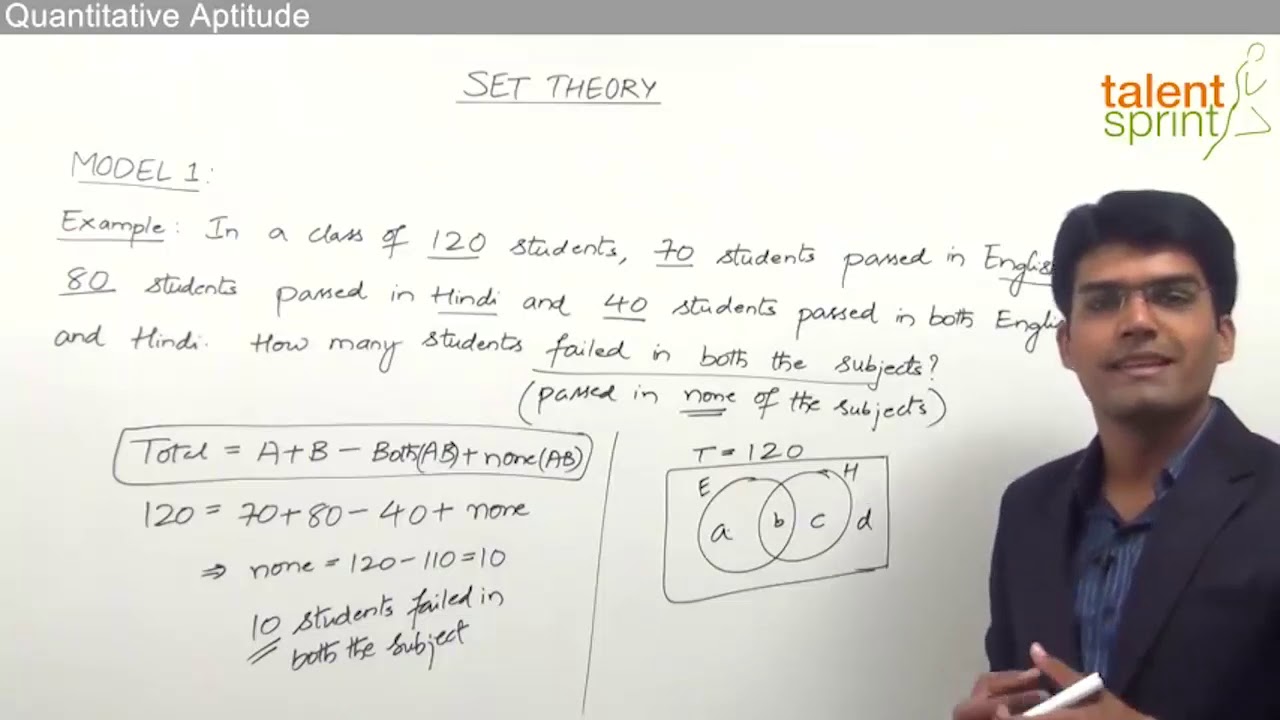 Quantitative Aptitude
SET THEORY
talent
sprint
MODEL 1:
Example: In a class of 120 students, 70 students passed in English
80 students passed in Hindi and 40 students passed in both
and Hindi. How many students failed in both the subjects?
(passed in none of the subjects)
Total = A+B - Both(AB) + none(AB)
120 = 70+80 - 40 + none
⇒ none = 120 - 110 = 10
10 students failed in
both the subject
T = 120
E H
a b c d